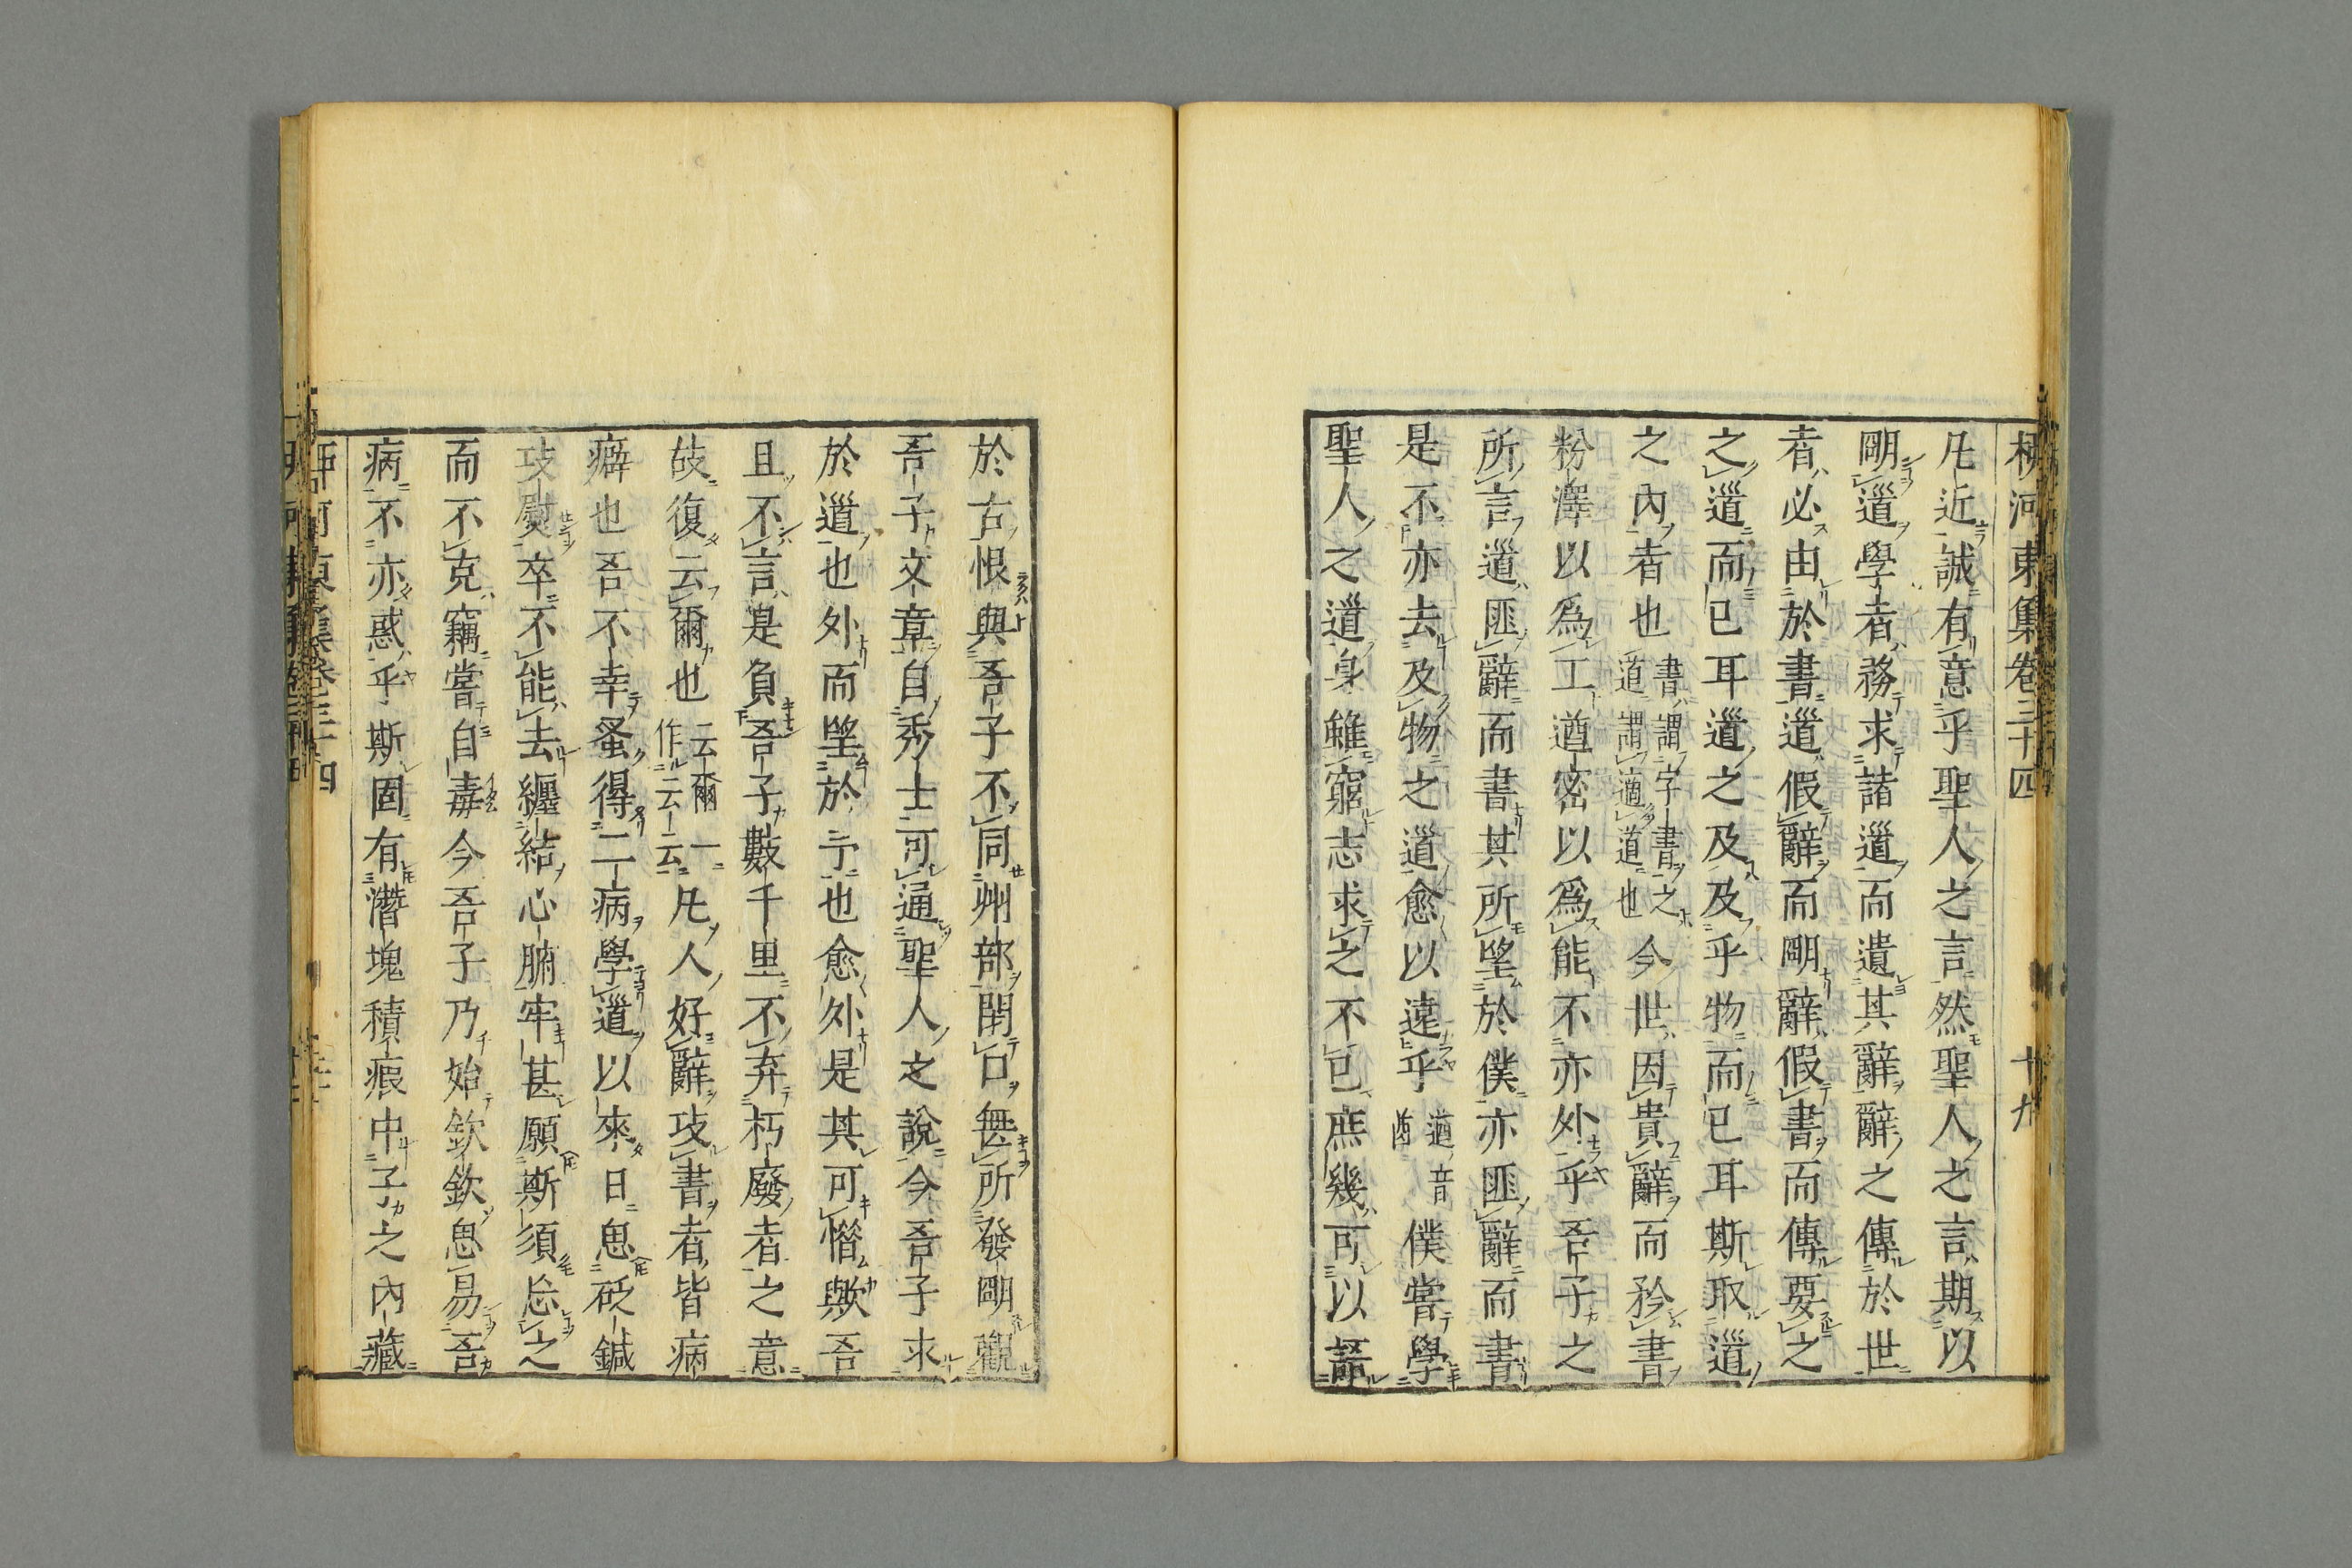 柳河東集卷三十四　十九
凡近誠有意乎聖人之言然聖人之言期以
明道學者務求諸道而遺其辭辭之傳於世
者必由於書道假辭而明辭假書而傳要之
之道而已耳道之及及乎物而已耳斯取道
之內者也書謂字書之道謂適道也今世因貴辭而矜書
粉澤以為工遒密以為能不亦外乎吾子之
所言道匪辭而書其所望於僕亦匪辭而書
是不亦去及物之道愈以遠乎遒音酋僕嘗學
聖人之道身雖窮志求之不已庶幾可以語
於古恨與吾子不同州部閉口無所發明觀
吾子文章自秀士可通聖人之說今吾子求
於道也外而望於予也愈外是其可惜歟吾
且不言是負吾子數千里不弃朽廢者之意
故復云爾也云爾一作云云凡人好辭攻書者皆病
癖也吾不幸蚤得二病學道以來日思砭鍼
攻熨卒不能去纏結心腑牢甚願斯須忘之
而不克竊嘗自毒今吾子乃始欽欽思易吾
病不亦惑乎斯固有潛塊積瘕中子之內藏